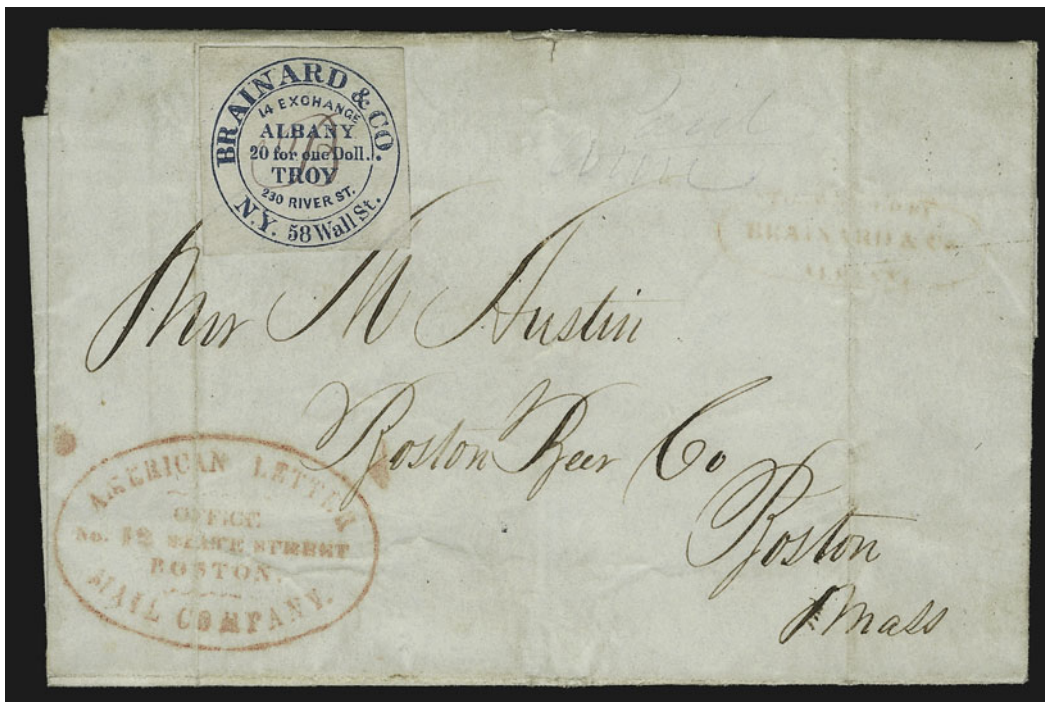 BRAINARD & CO.
14 EXCHANGE
ALBANY
20 for one Doll.
TROY
230 RIVER ST.
N.Y. 58 Wall St.
B
Paid
BRAINARD & Co
Mr M Austin
Boston Beer Co
Boston
Mass
AMERICAN LETTER
OFFICE
No. 12 STATE STREET
BOSTON.
MAIL COMPANY.